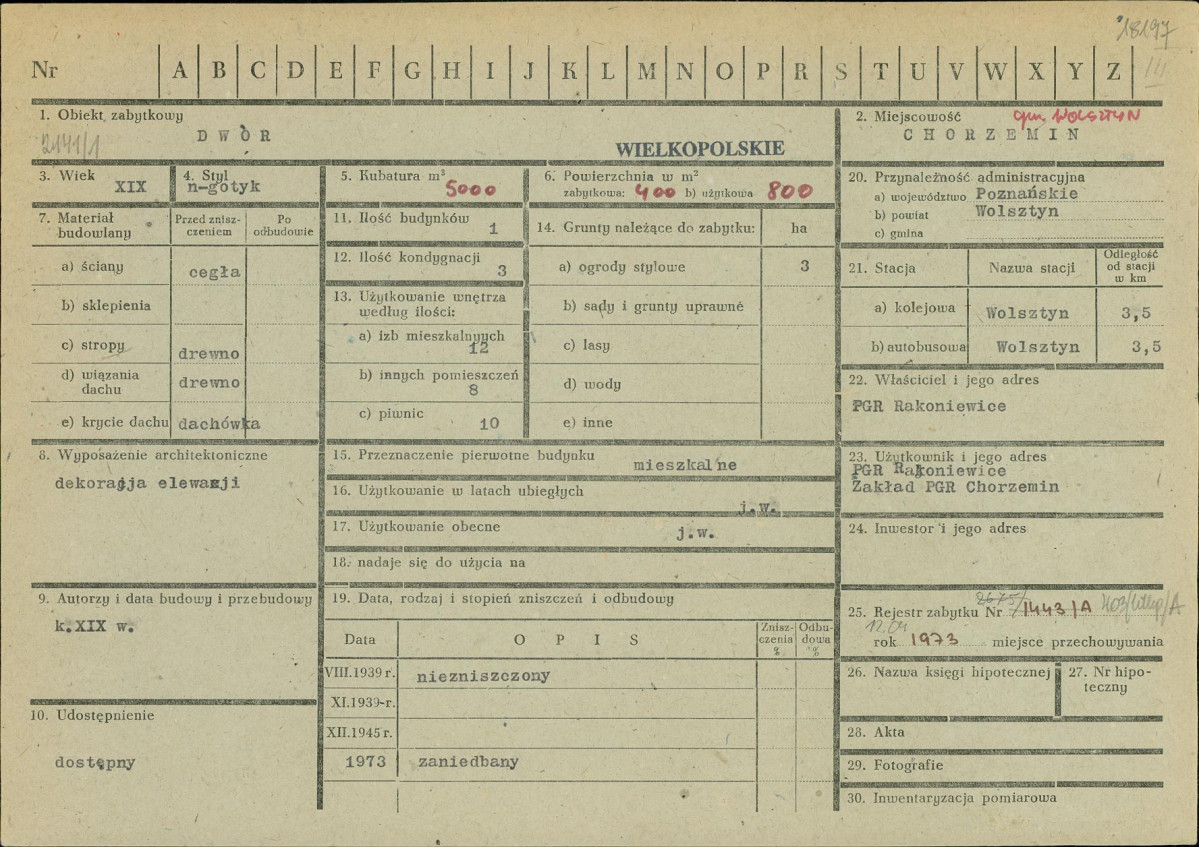 18197
Nr A B C D E F G H I J K L M N O P R S T U V W X Y Z
1. Obiekt zabytkowy
2141/1
DWÓR
WIELKOPOLSKIE
2. Miejscowość gm. WOLSZTYN
CHORZEMIN
3. Wiek
XIX
4. Styl
n-gotyk
5. Kubatura m³
5000
6. Powierzchnia w m²
zabytkowa: 400 b) użytkowa 800
7. Materiał budowlany
Przed zniszczeniem
Po odbudowie
a) ściany cegła
b) sklepienia
c) stropy drewno
d) wiązania dachu drewno
e) krycie dachu dachówka
11. Ilość budynków
1
12. Ilość kondygnacji
3
13. Użytkowanie wnętrza
według ilości:
a) izb mieszkalnych
12
b) innych pomieszczeń
8
c) piwnic
10
14. Grunty należące do zabytku: ha
a) ogrody stylowe 3
b) sady i grunty uprawne
c) lasy
d) wody
e) inne
20. Przynależność administracyjna
a) województwo Poznańskie
b) powiat Wolsztyn
c) gmina
21. Stacja Nazwa stacji Odległość od stacji w km
a) kolejowa Wolsztyn 3,5
b) autobusowa Wolsztyn 3,5
22. Właściciel i jego adres
PGR Rakoniewice
8. Wyposażenie architektoniczne
dekoracja elewacji
15. Przeznaczenie pierwotne budynku mieszkalne
16. Użytkowanie w latach ubiegłych
j.w.
17. Użytkowanie obecne j.w.
18. nadaje się do użycia na
23. Użytkownik i jego adres
PGR Rakoniewice
Zakład PGR Chorzemin
24. Inwestor i jego adres
9. Autorzy i data budowy i przebudowy
k.XIX w.
10. Udostępnienie
dostępny
19. Data, rodzaj i stopień zniszczeń i odbudowy
Data OPIS Zniszczenia % Odbudowa %
VIII.1939 r. niezniszczony
XI.1939-r.
XII.1945 r.
1973 zaniedbany
25. Rejestr zabytku Nr 2675/1443/A 403/Wlkp/A
12.04
rok 1973 miejsce przechowywania
26. Nazwa księgi hipotecznej
27. Nr hipoteczny
28. Akta
29. Fotografie
30. Inwentaryzacja pomiarowa